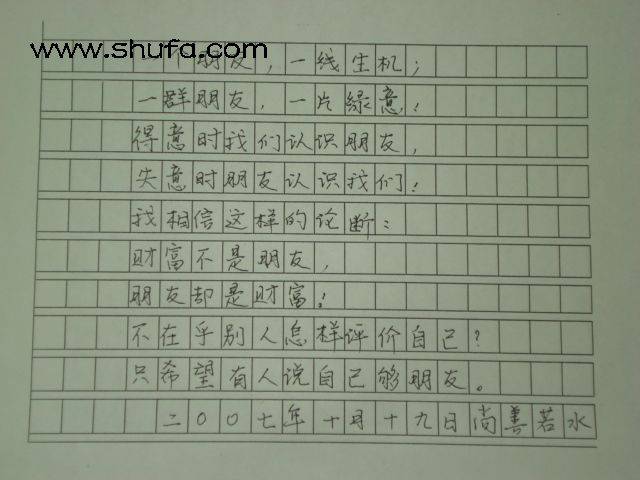 www.shufa.com
一个朋友，一线生机；
一群朋友，一片绿意！
得意时我们认识朋友，
失意时朋友认识我们！
我相信这样的论断：
财富不是朋友，
朋友却是财富！
不在乎别人怎样评价自己？
只希望有人说自己够朋友。
二〇〇七年十月十九日尚善若水